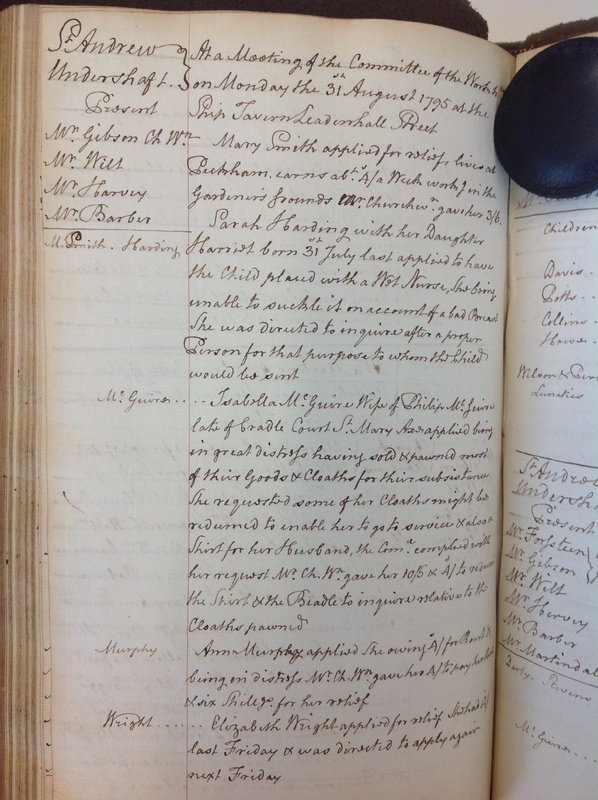 St. Andrew
Undershaft.
Present
Mr. Gibson Ch. Wn.
Mr. Wilt
Mr. Harvey
Mr. Barber
At a Meeting of the Committee of the Workhs.
on Monday the 31st August 1795 at the
Ship Tavern Leadenhall Street
Mary Smith applied for relief lives at
Peckham, earns abt. 4/ a Week workg. in the
Gardeners grounds Mr. Churchwn. gave her 3/6.
M. Smith. Harding
Sarah Harding with her Daughter
Harriet born 31st July last applied to have
the Child placed with a Wet Nurse, She being
unable to suckle it on account of a bad Breast
She was directed to inquire after a proper
Person for that purpose to whom the Child
would be sent
Mc. Guire . . . . Isabella Mc. Guire Wife of Philip Mc. Guire
late of Cradle Court St. Mary Axe applied being
in great distress having sold & pawned most
of their Goods & Cloaths for their subsistance
She requested some of her Cloaths might be
redeemed to enable her to go to service & also a
Shirt for her Husband, the Come. complied with
her request Mr. Ch. Wn. gave her 10/6 & 4/ to redeem
the Shirt & the Beadle to inquire relative to the
Cloaths pawned
Murphy
Ann Murphy applied She owing 4/ for Rent &
being in distress Mr. Ch. Wn. gave her 4/ to pay her Rent
& six Shillgs. for her relief
Wright . . . . . . Elizabeth Wright applied for relief She had 2/
last Friday & was directed to apply again
next Friday
Children
Davis.
Potts.
Collins.
Hawes.
Lunatics
St. Andrew
Undersha
Present
Mr. Forsteen
Mr. Gibson
Mr. Wilt
Mr. Harvey
Mr. Barber
Mr. Martindal
Darby. Stevens
Mc. Guire . . .